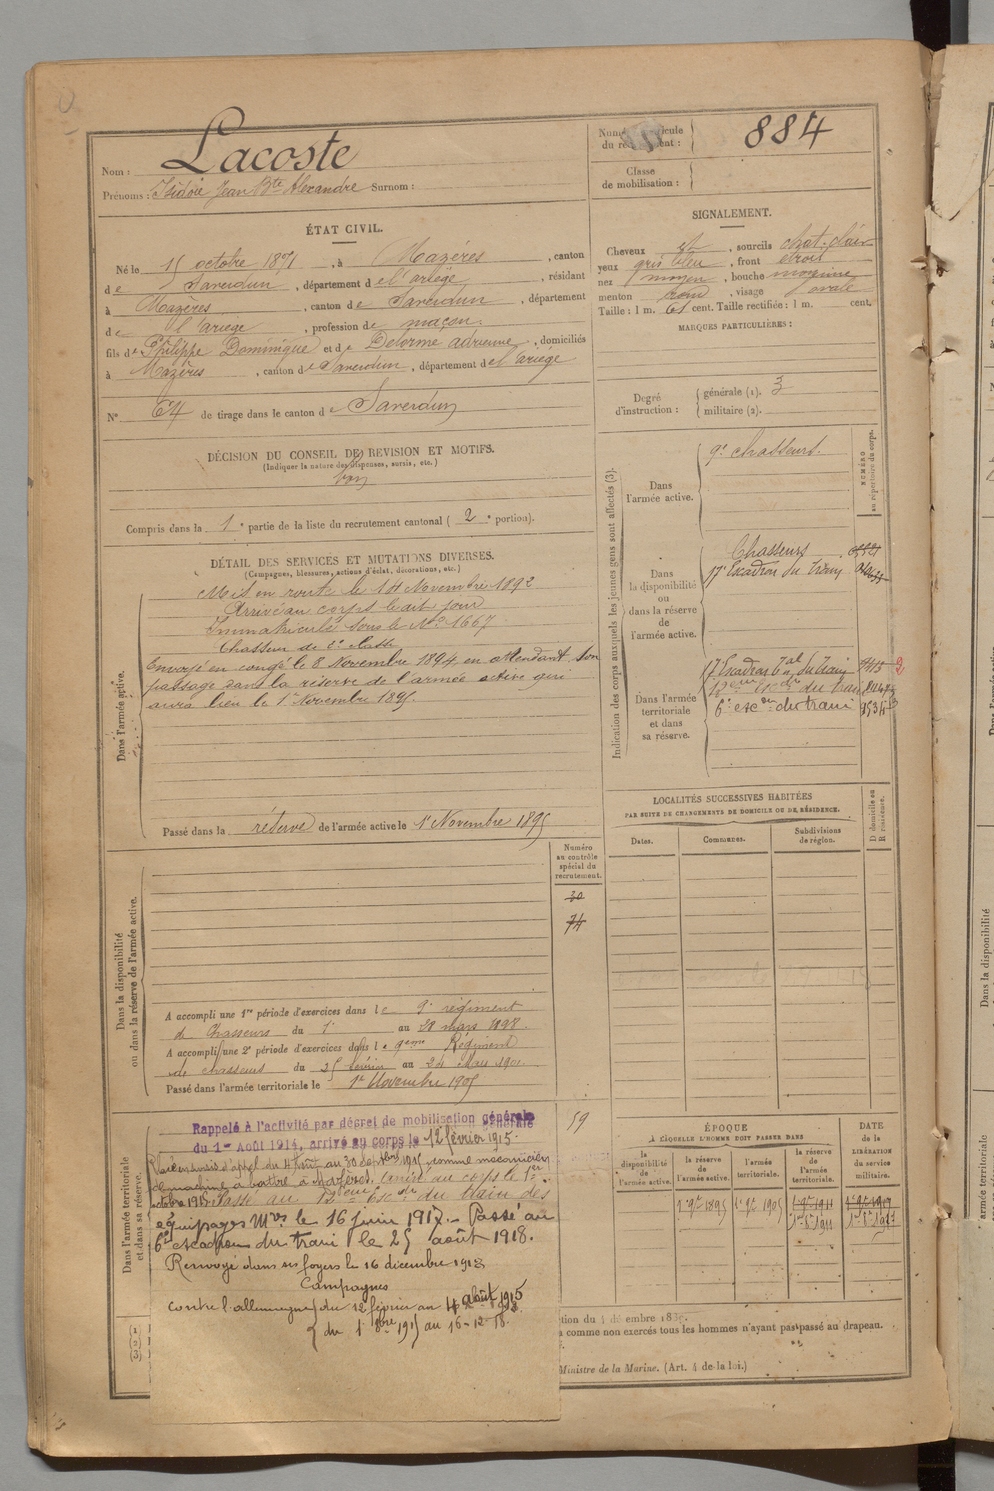 Nom : Lacoste
Prénoms : Isidore Jean Bte Alexandre Surnom :
Numéro matricule
du recrutement :
884
Classe
de mobilisation :
ÉTAT CIVIL.
Né le 15 octobre 1871, à Mazères, canton
de Saverdun, département de l'ariège, résidant
à Mazères, canton de Saverdun, département
de l'ariège, profession de maçon.
fils de Philippe Dominique et de Delorme adrienne, domiciliés
à Mazères, canton de Saverdun, département de l'ariège
No 64 de tirage dans le canton de Saverdun
SIGNALEMENT.
Cheveux , sourcils chat. clair
yeux gris bleu, front étroit
nez moyen, bouche moyenne
menton rond, visage ovale
Taille : 1 m. 61 cent. Taille rectifiée : 1 m. cent.
MARQUES PARTICULIÈRES :
Degré
d'instruction :
générale (1). 3
militaire (2).
DÉCISION DU CONSEIL DE REVISION ET MOTIFS.
(Indiquer la nature des dispenses, sursis, etc.)
bon
Compris dans la 1e partie de la liste du recrutement cantonal ( 2e portion).
DÉTAIL DES SERVICES ET MUTATIONS DIVERSES.
(Campagnes, blessures, actions d'éclat, décorations, etc.)
Dans l'armée active.
Mis en route le 14 Novembre 1892
Arrivé au corps le dit jour
Immatriculé sous le No 1667
Chasseur de 2e classe
Envoyé en congé le 8 Novembre 1894 en attendant son
passage dans la réserve de l'armée active qui
aura lieu le 1er Novembre 1895.
Passé dans la réserve de l'armée active le 1er Novembre 1895
Indication des corps auxquels les jeunes gens sont affectés (3).
NUMÉRO
au répertoire du corps.
Dans
l'armée active.
9e chasseurs.
Dans
la disponibilité
ou
dans la réserve
de
l'armée active.
Chasseurs
17e Escadron du Train
Dans l'armée
territoriale
et dans
sa réserve.
17 Escadron Tal du Train
12eme Esc.on du train
6e esc.on du train
2
LOCALITÉS SUCCESSIVES HABITÉES
PAR SUITE DE CHANGEMENTS DE DOMICILE OU DE RÉSIDENCE.
Dates.
Communes.
Subdivisions
de région.
D domicile ou
R résidence.
Numéro
au contrôle
spécial du
recrutement.
30
74
59
Dans la disponibilité
ou dans la réserve de l'armée active.
A accompli une 1re période d'exercices dans le 9e régiment
de Chasseurs du 1er au 28 mars 1898.
A accompli une 2e période d'exercices dans le 9eme Régiment
de chasseurs du 25 février au 24 Mars 1901.
Passé dans l'armée territoriale le 1er Novembre 1905
Dans l'armée territoriale
et dans sa réserve.
Rappelé à l'activité par décret de mobilisation générale
du 1er Août 1914, arrivé au corps le 12 février 1915.
Placé en sursis d'appel du 4 août au 30 Septbre 1915 comme mécanicien
de machine à battre à Mazères. Arrivé au corps le 1er
octobre 1915. Passé au 12eme Esc.on du train des
équipages Mres le 16 juin 1917. - Passé au
6e escadron du train le 25 août 1918.
Renvoyé dans ses foyers le 16 décembre 1918
Campagnes
Contre l'allemagne du 12 février au 4 août 1915
du 1er 8bre 1915 au 16-12-18.
ÉPOQUE
A LAQUELLE L'HOMME DOIT PASSER DANS
la
disponibilité
de
l'armée active.
la
réserve de
l'armée active.
l'armée
territoriale.
la
réserve
de
l'armée
territoriale.
DATE
de la
LIBÉRATION
du service
militaire.
1er 9bre 1895
1er 9bre 1905
1er 9bre 1911
1er 8bre 1911
1er 9bre 1917
1er 8bre 1917
(1)
(2)
(3)
comme non exercés tous les hommes n'ayant pas passé au drapeau.
Ministre de la Marine. (Art. 4 de la loi.)